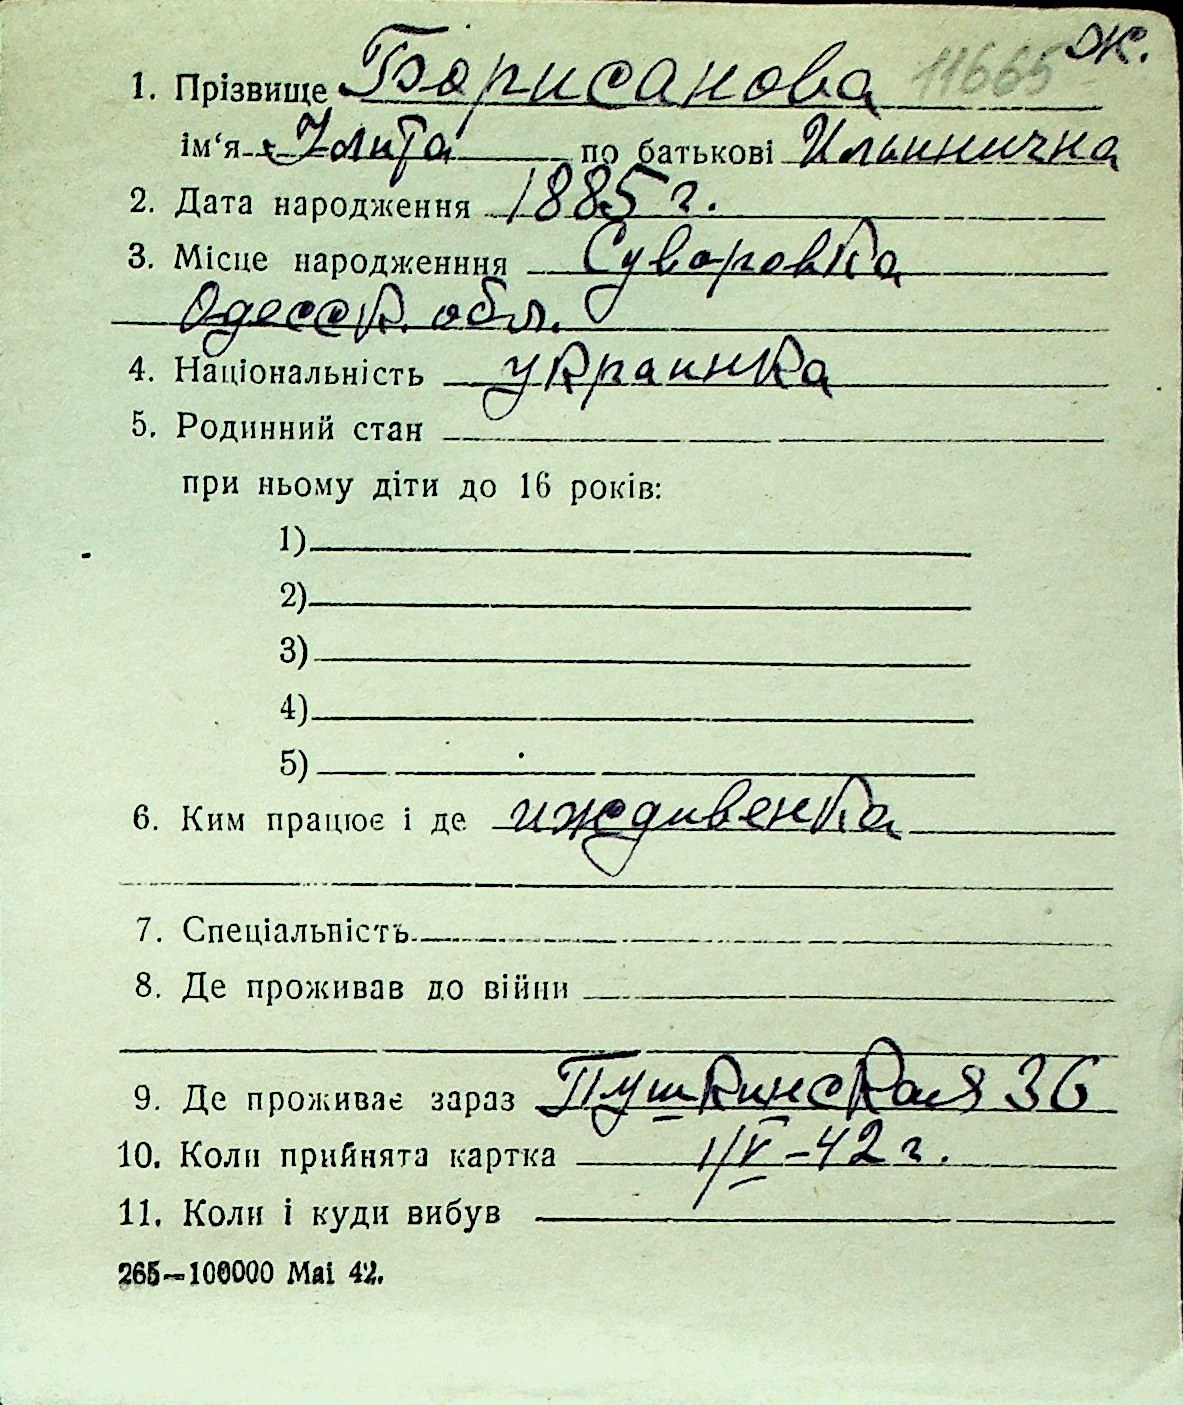 ж.
1. Прізвище Борисанова 11665
ім'я Улита по батькові Ильинична
2. Дата народження 1885 г.
3. Місце народженння Суворовка
Одесск. обл.
4. Національність украинка
5. Родинний стан
при ньому діти до 16 років:
1)
2)
3)
4)
5)
6. Ким працює і де иждивенка
7. Спеціальність
8. Де проживав до війни
9. Де проживає зараз Пушкинская 36
10. Коли прийнята картка 1/V-42 г.
11. Коли і куди вибув
265—100000 Mai 42.